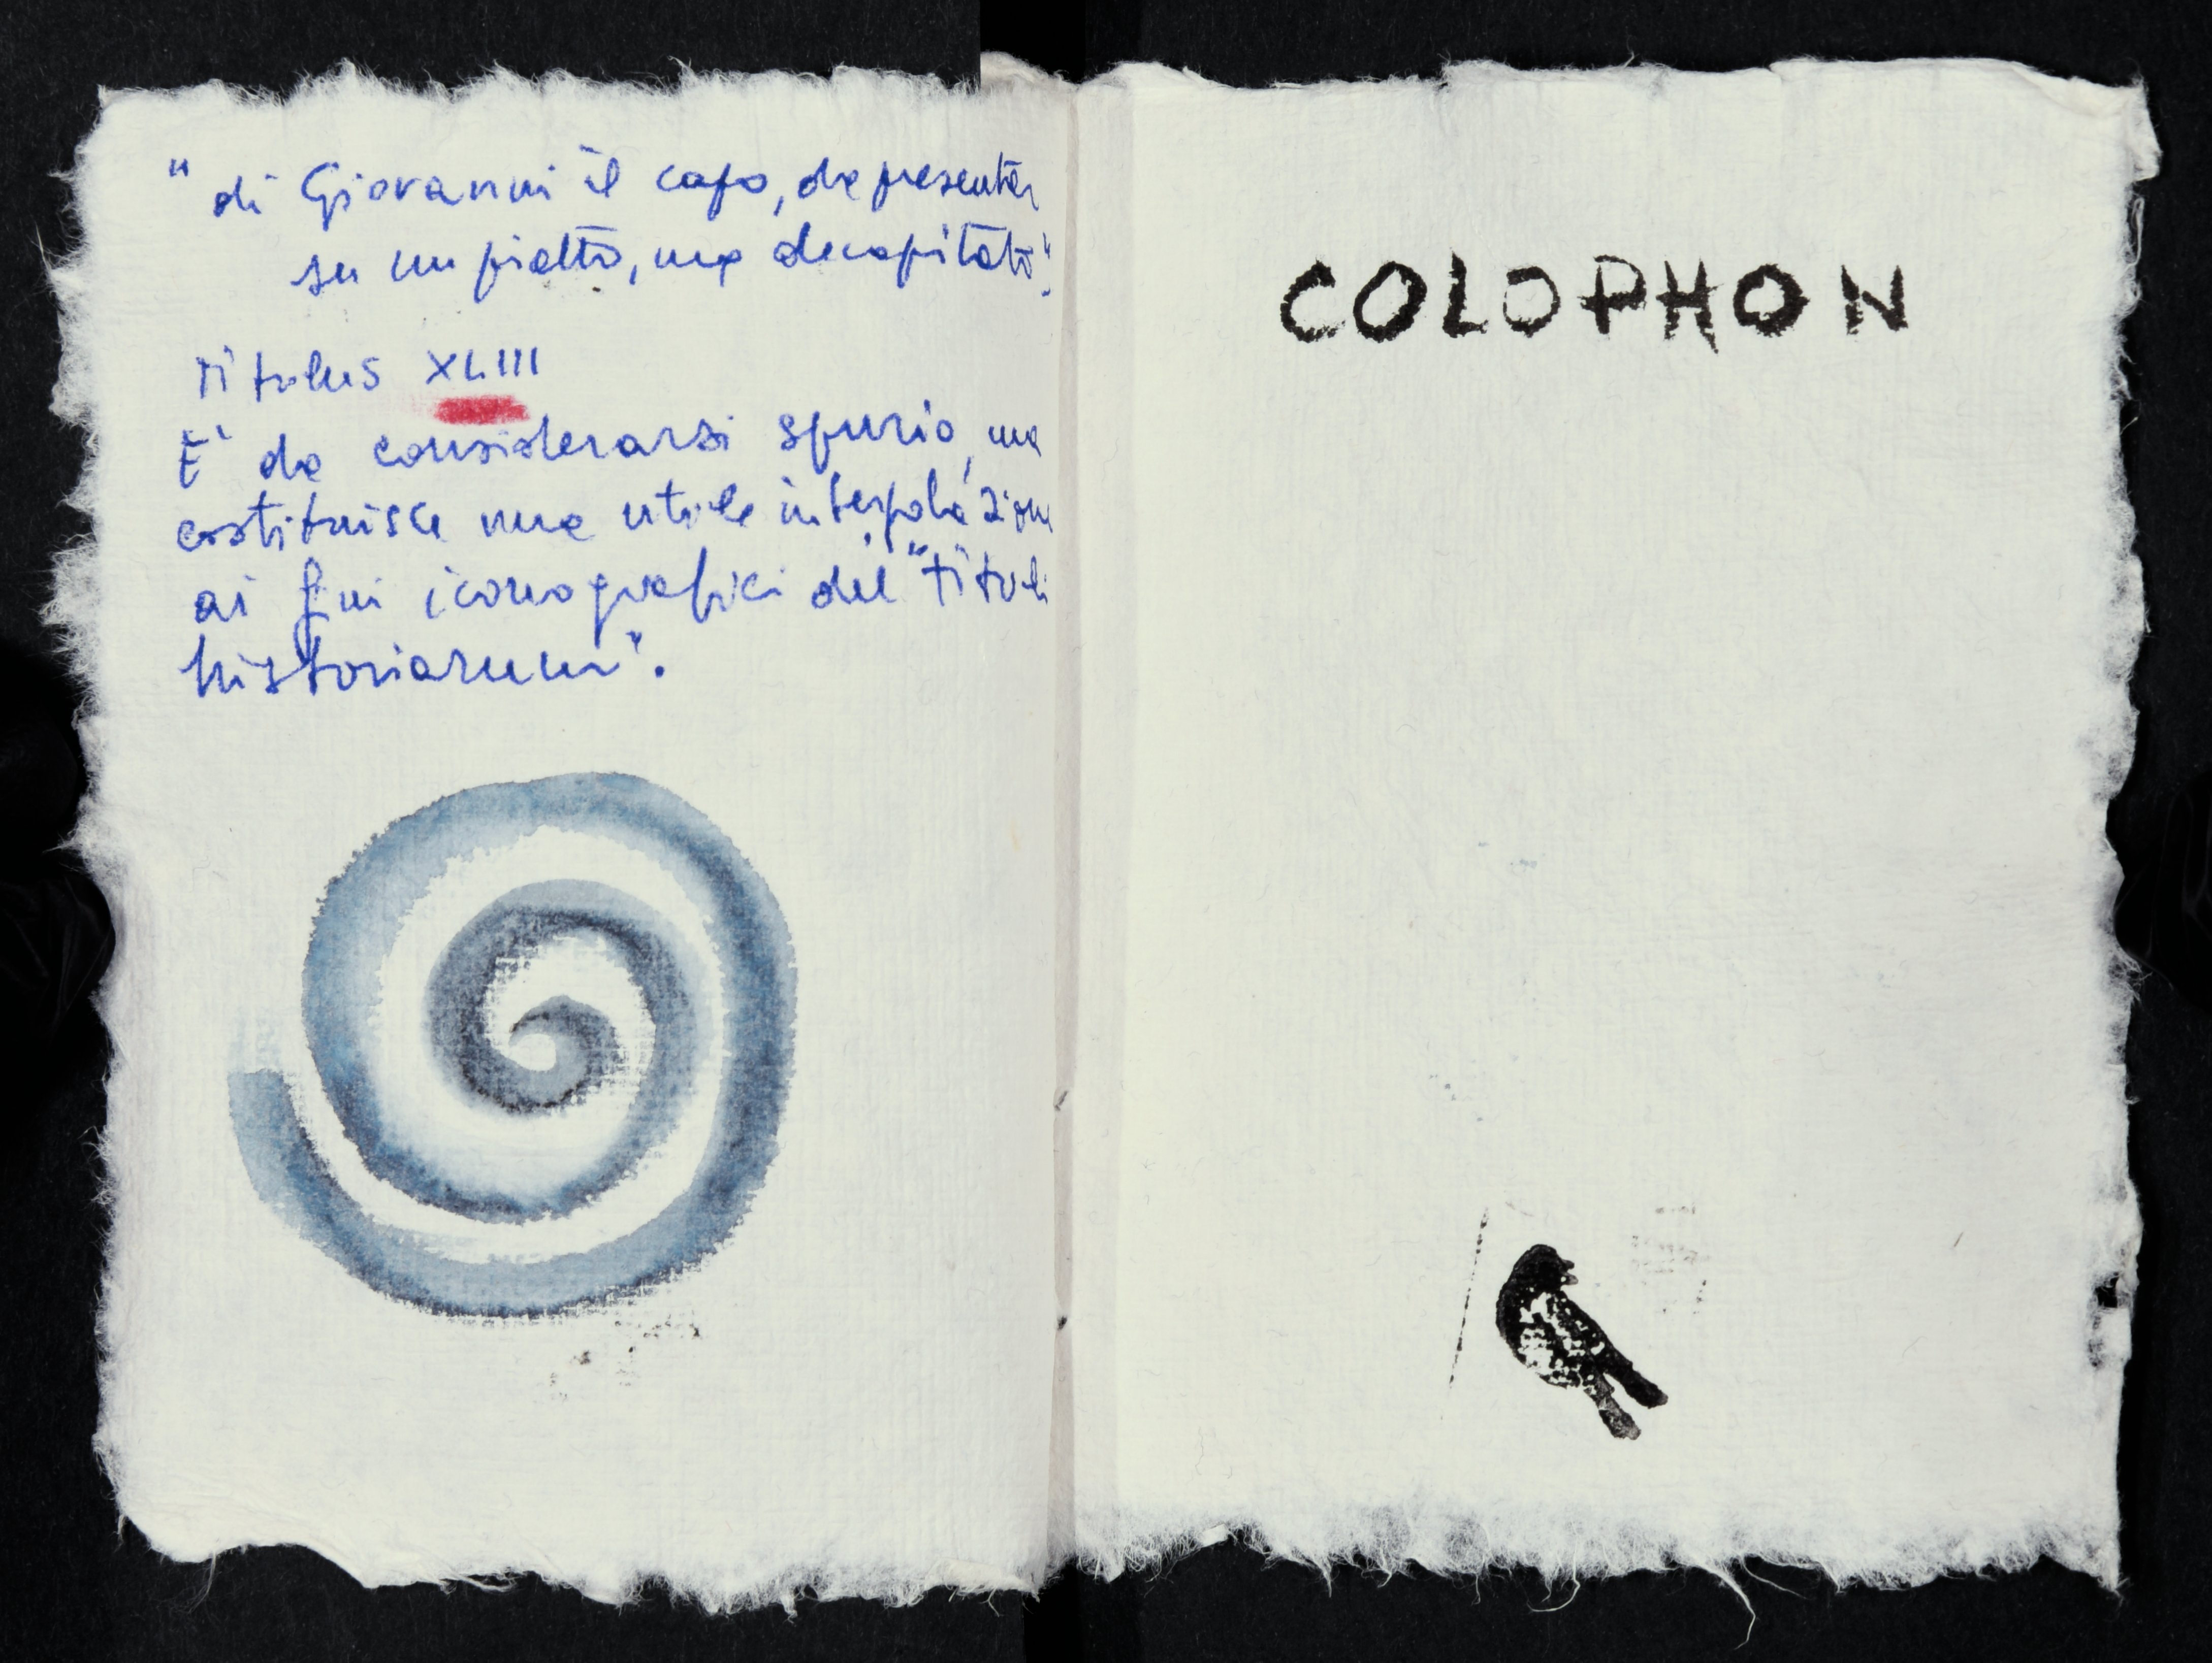 "di Giovanni il capo, da presentar
su un piatto, ma decapitato".
Titulus XLIII
E' da considerarsi spurio, ma
costituisce una utile interpolazione
ai fini iconografici del "Tituli
historiarum".
COLOPHON